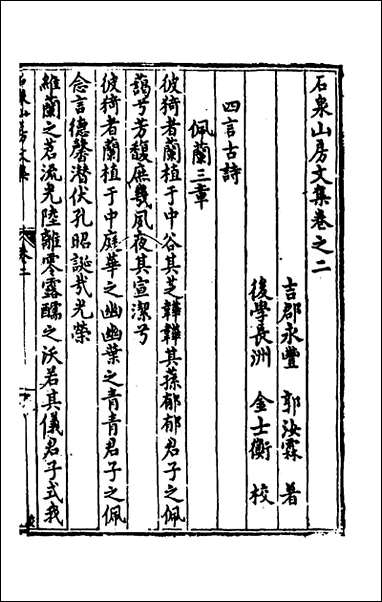 石泉山房文集卷之二
吉郡永豐 郭汝霖 著
後學長洲 金士衡 校
四言古詩
佩蘭三章
彼猗者蘭植于中谷其芝韡韡其蓀郁郁君子之佩
藹兮芳馥庶幾夙夜其宣潔兮
彼猗者蘭植于中庭華之幽幽葉之青青君子之佩
念言德馨潛伏孔昭誕哉光榮
維蘭之茗流光陸離零露醹之沃若其儀君子式我
石泉山房文集 卷二